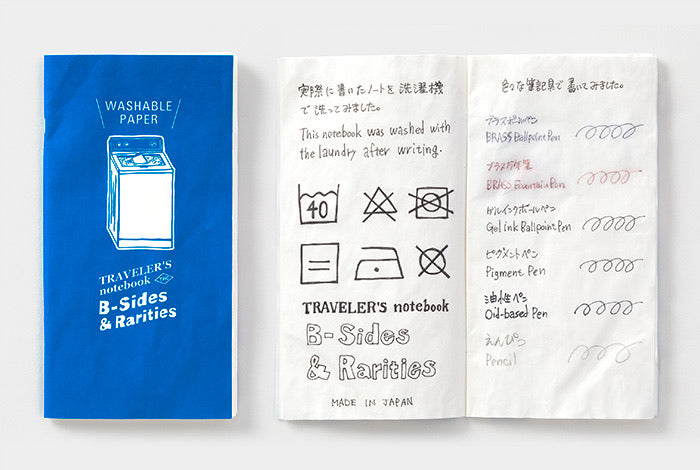 WASHABLE
PAPER
TRAVELER'S
notebook
B-Sides
& Rarities
実際に書いたノートを洗濯機
で洗ってみました。
This notebook was washed with
the laundry after writing.
40
TRAVELER'S notebook
B-Sides
& Rarities
MADE IN JAPAN
色々な筆記具で書いてみました。
ブラスボールペン
BRASS Ballpoint Pen
ブラス万年筆
BRASS Fountain Pen
ゲルインクボールペン
Gel ink Ballpoint Pen
ピグメントペン
Pigment Pen
油性ペン
Oil-based Pen
えんぴつ
Pencil